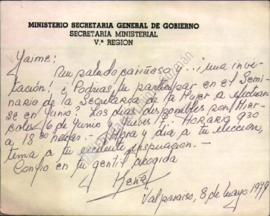 MINISTERIO SECRETARIA GENERAL DE GOBIERNO
SECRETARIA MINISTERIAL
V.ª REGION
Jaime:
Un saludo cariñoso ... una invi-
tación! ¿Podrías tú participar en el Semi-
nario de la Secretaría de la Mujer a efectuar-
se en Junio? Los días disponibles son Mier-
coles 6 de Junio y Jueves 7 - Horario 9.30
a 18 horas. - Hora y día a tu elección,
tema a tu
Confío en tu gentil acogida
Valparaíso, 8 de mayo 1979